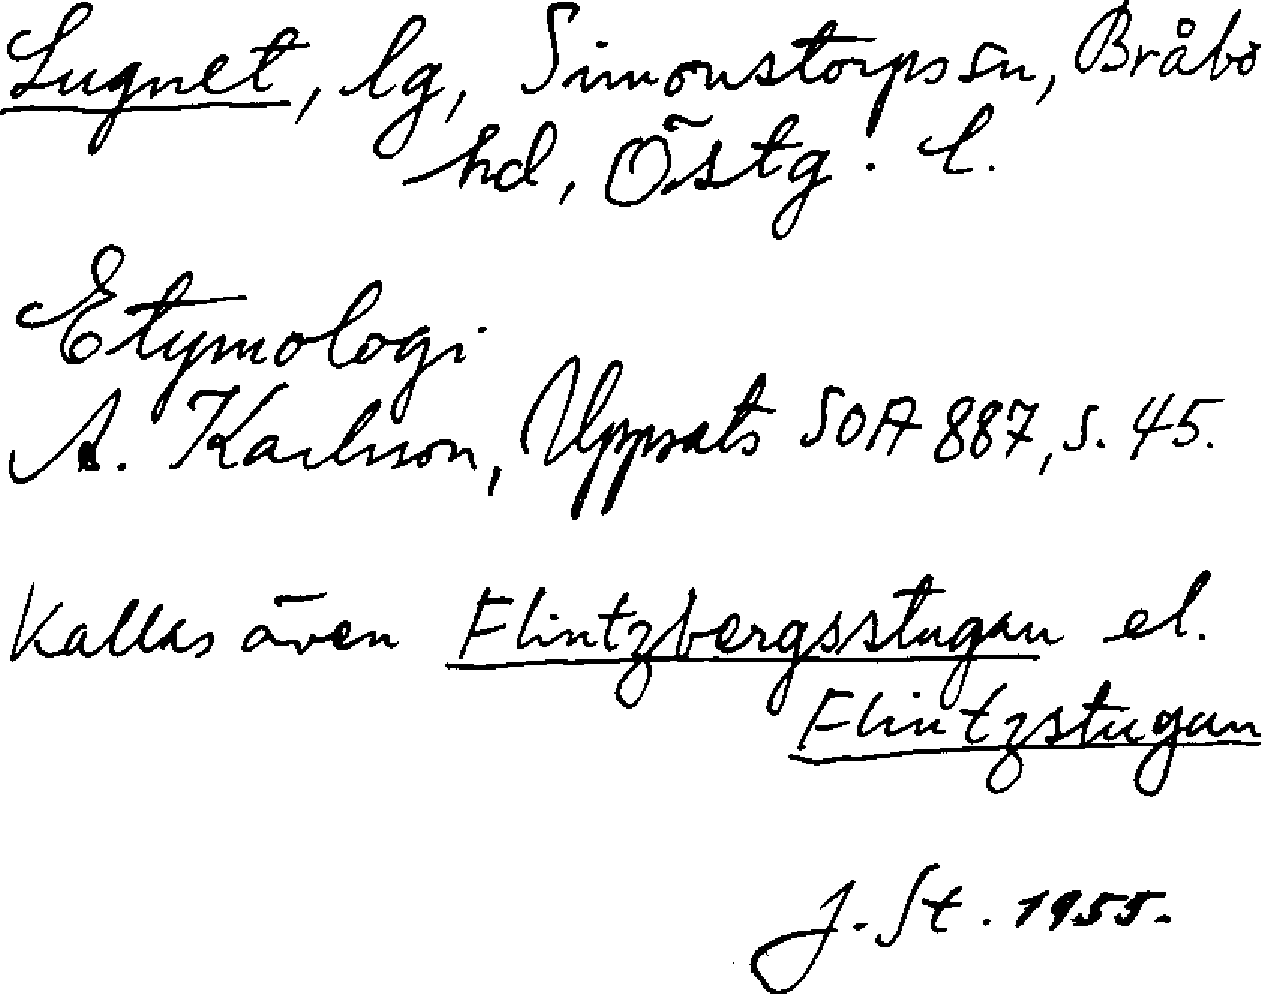 Lugnet, lg, Simonstorps sn, Bråbo
hd, Östg. l.
Etymologi
A. Karlsson, Uppsats SOA 887, s. 45.
Kallas även Flintzbergsstugan el.
Flintzstugan
J. St. 1955.